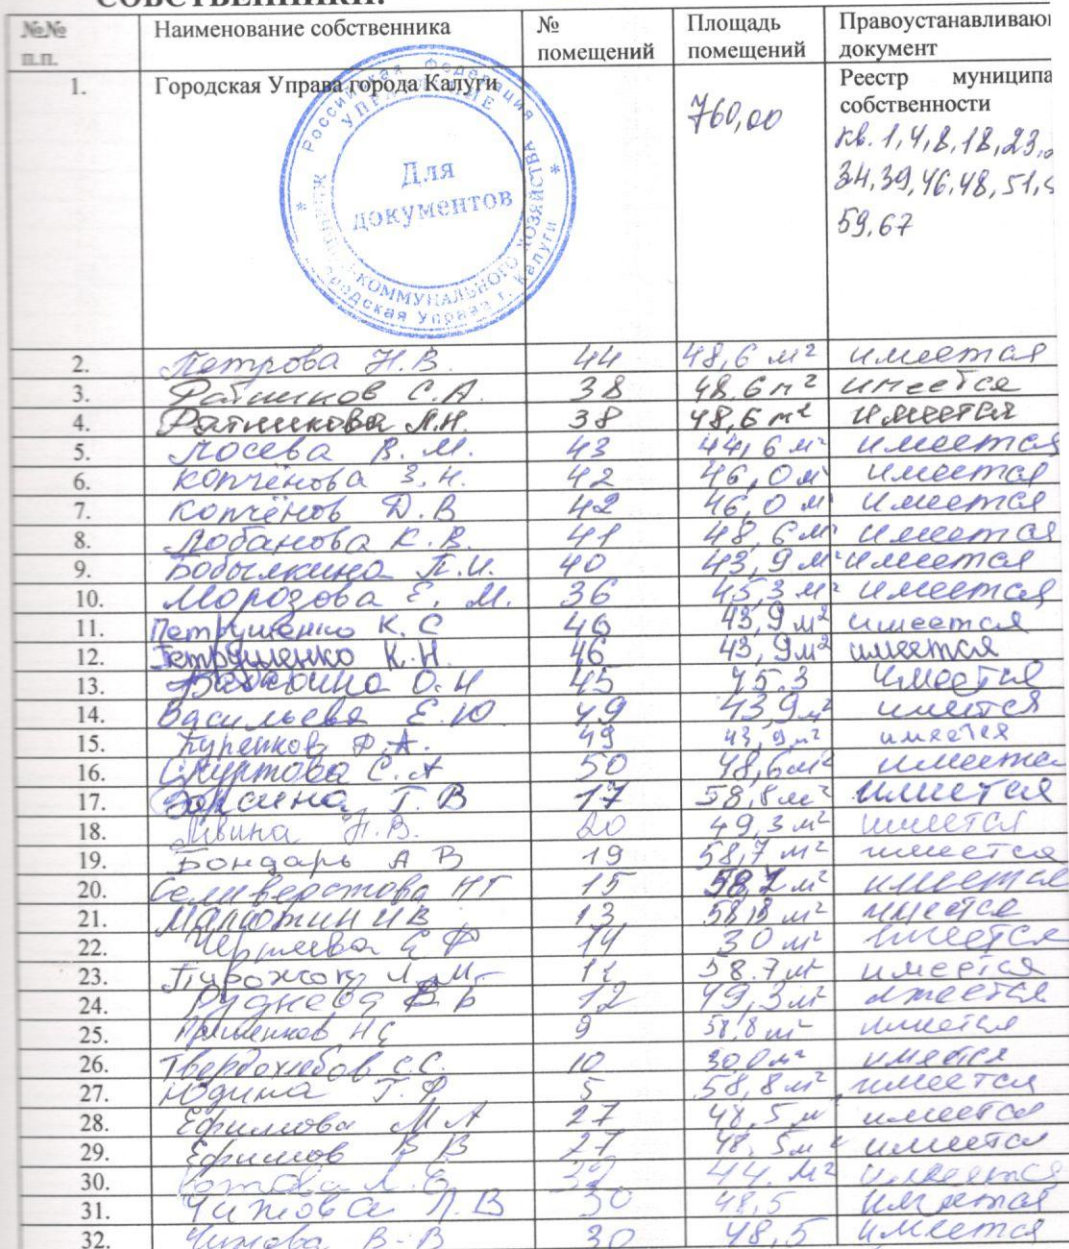 СОБСТВЕННИКИ:
№№ п.п. Наименование собственника № помещений Площадь помещений Правоустанавливаю документ
1. Городская Управа города Калуги 760,00 Реестр муниципа собственности
кв. 1,4,8,18,23,
34,39,46,48,51,
59,67
Российская Федерация
УПРАВЛЕНИЕ
КОММУНАЛЬНОГО ХОЗЯЙСТВА
Городская Управа г. Калуги
Для
документов
2. Петрова Н.В. 44 48,6 м² имеется
3. С.А. 38 48.6 м² имеется
4. Ратникова Л.Н. 38 48,6 м² имеется
5. Лосева В.М. 43 44,6 м² имеется
6. Копчёнова З.Н. 42 46,0 м имеется
7. Копчёнов Д.В 42 46,0 м имеется
8. Лобанова К.В. 41 48,6 м имеется
9. Бобылкина П.И. 40 43,9 м² имеется
10. Морозова Е.М. 36 45,3 м² имеется
11. Петрушенко К.С 46 43,9 м² имеется
12. Петрушенко К.Н. 46 43,9м² имеется
13. О.Н 45 45.3 имеется
14. Васильева Е.Ю 49 43,9м² имеется
15. Куренков Ф.А. 49 43,9 м² имеется
16. С.А 50 48,6м² имеется
17. Т.В 17 58,8м² имеется
18. Н.В. 20 49,3 м² имеется
19. Бондарь А В 19 58,7 м² имеется
20. Селиверстова НГ 15 58,7 м² имеется
21. Малютин ИВ 13 58,8 м² имеется
22. Е Ф 14 30 м² имеется
23. Л.М. 11 58.7 м² имеется
24. Руднева В Б 12 49,3м² имеется
25. НС 9 58,8 м² имеется
26. Твердохлебов С.С. 10 30,0м² имеется
27. Юдина Т.Ф 5 58,8 м² имеется
28. Ефимова М А 27 48,5 м имеется
29. Ефимов В В 27 48,5м² имеется
30. 44. м² имеется
31. Чижова Л.В 30 48,5 имеется
32. Чижова В-В 30 48,5 имеется